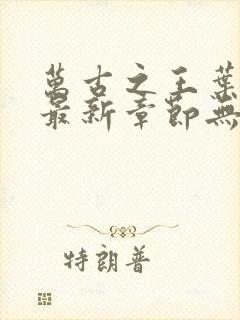 萬古之王葉
最新章節無
特朗普